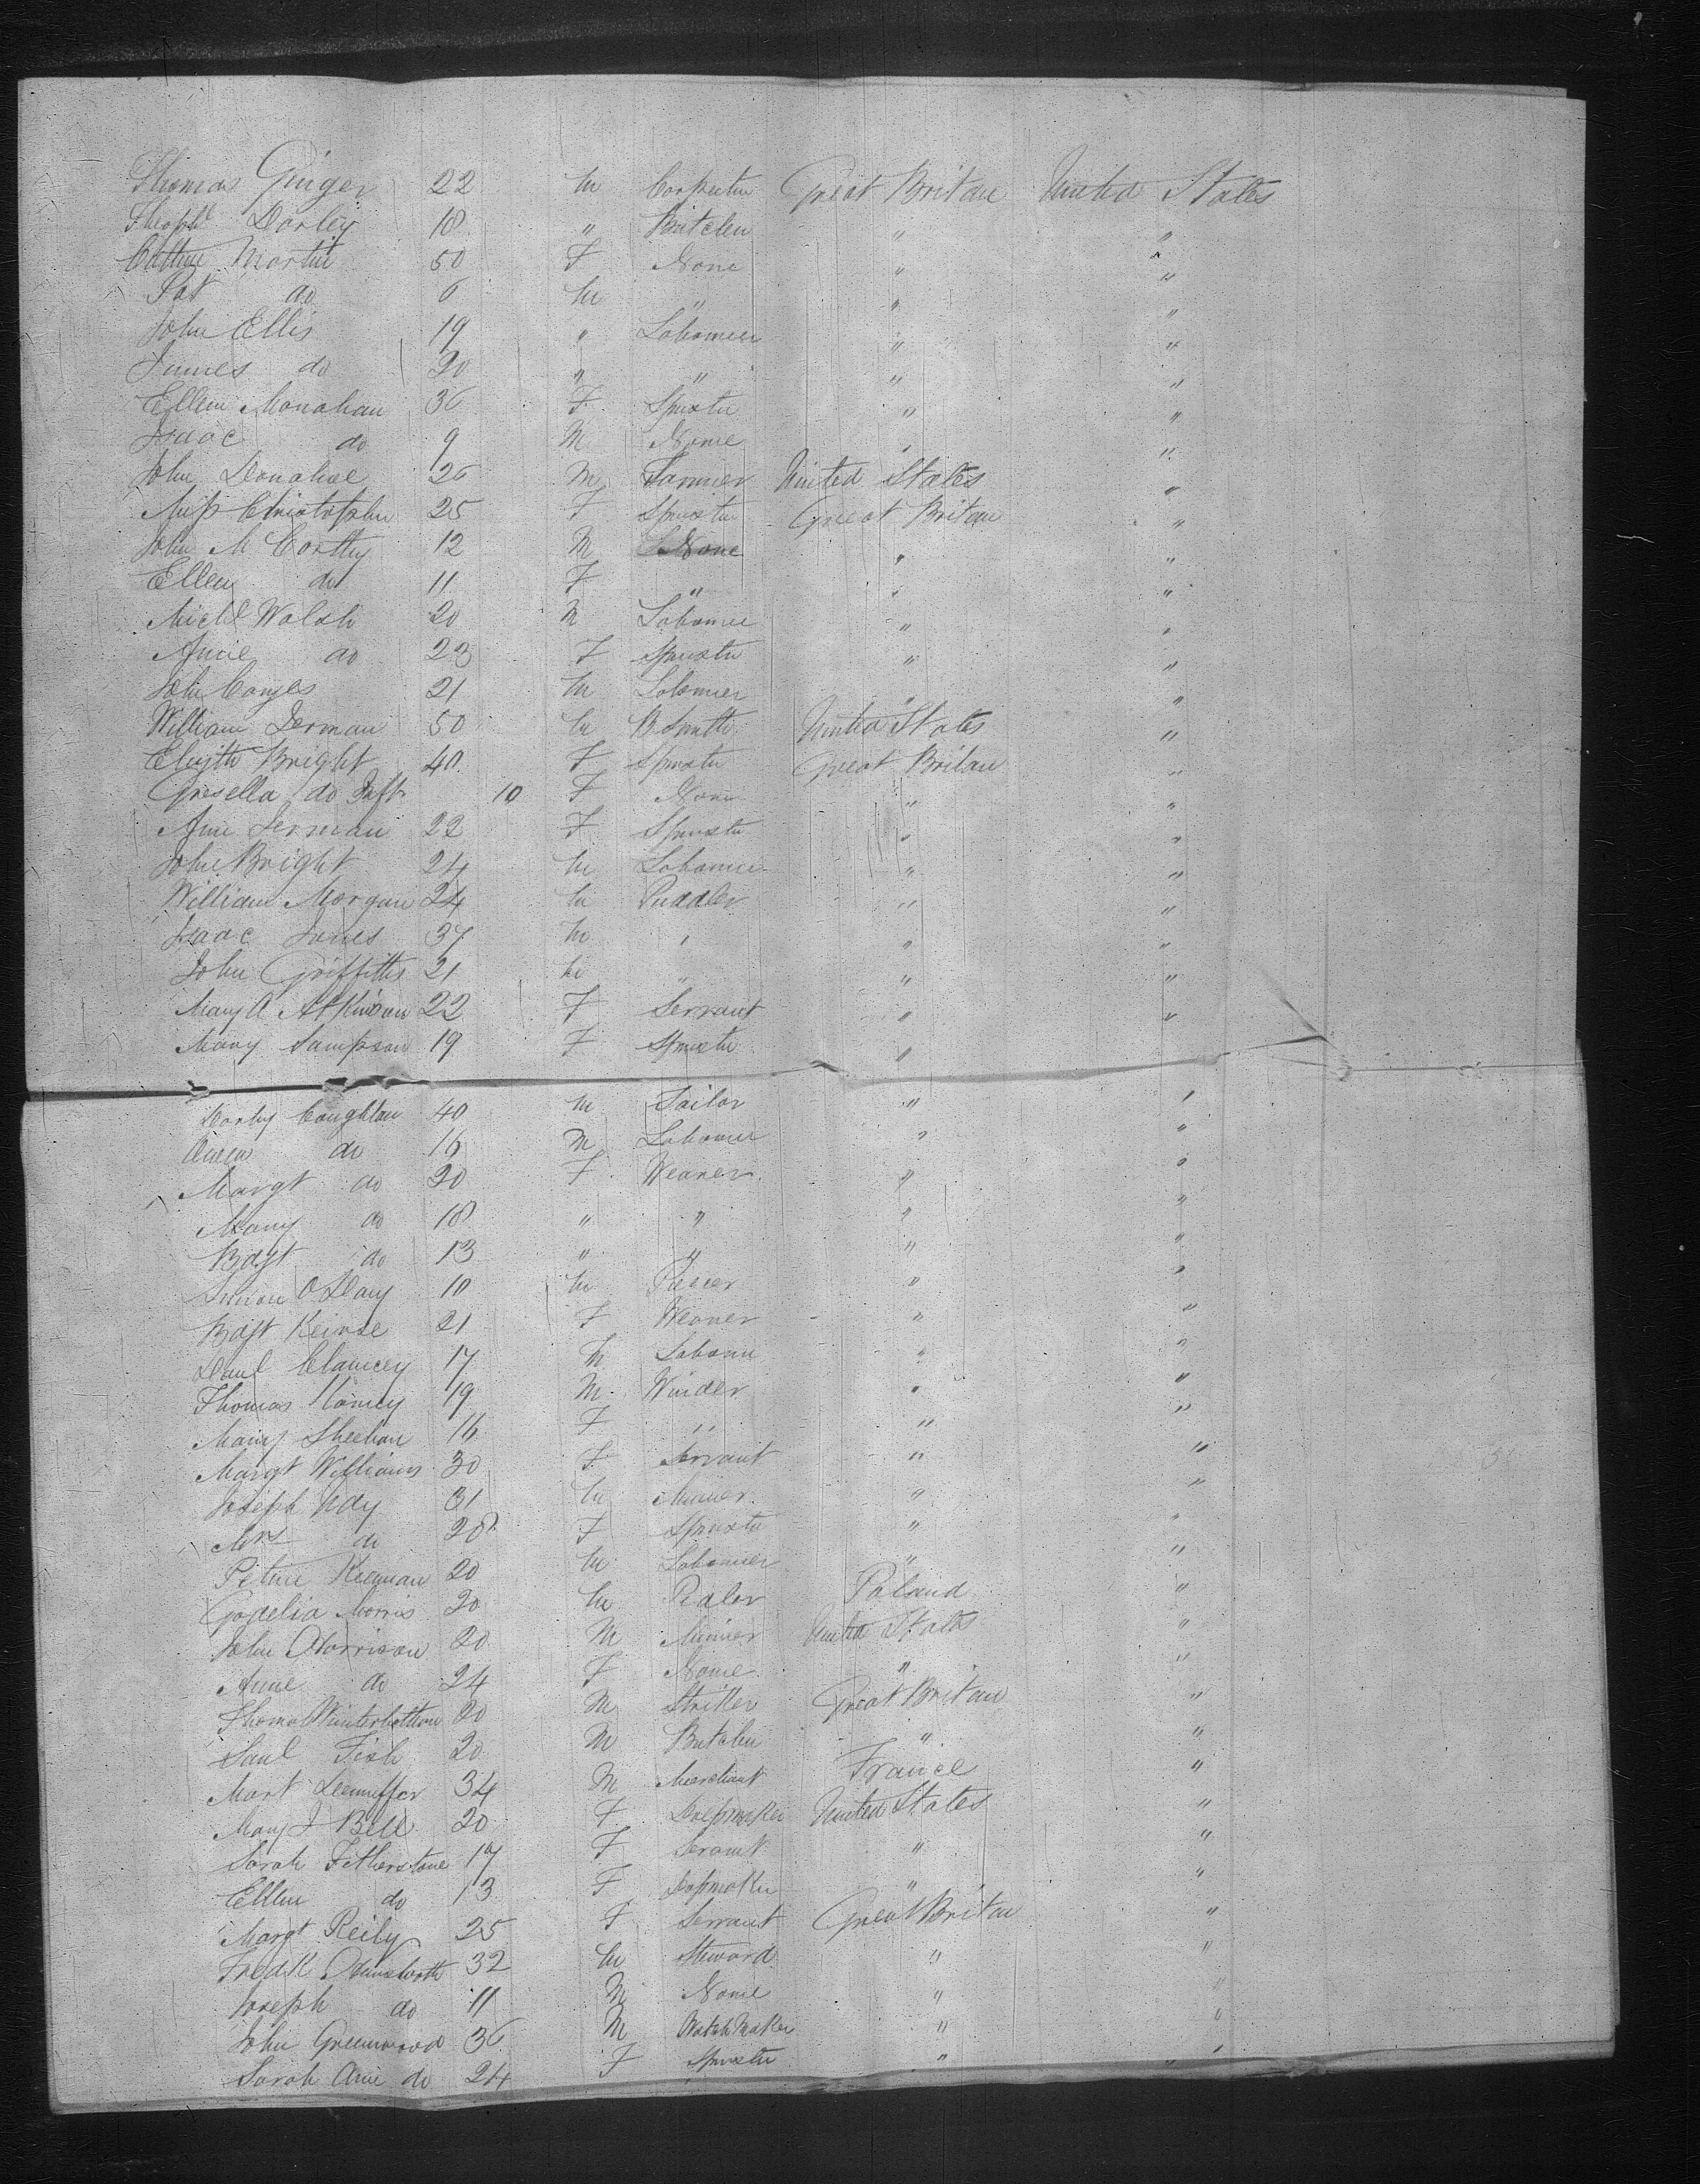 Thomas Ginger 22 M Carpenter Great Britain United States
Theophl Darley 18 " Butcher " "
Martin 50 F None " "
Pat do 6 M " " "
John Ellis 19 " Labourer " "
James do 20 " " " "
Ellen Monahan 36 F Spinster " "
Isaac do 9 M None " "
John Donahue 26 M Farmer United States "
Miss Christopher 25 F Spinster Great Britain "
John McCarthy 12 M None " "
Ellen do 11 F " " "
Michl Walsh 20 M Labourer " "
Anne do 23 F Spinster " "
John 21 M Labourer " "
William Jerman 50 M B Smith United States "
Bright 40 F Spinster Great Britain "
Grisella do Inft 10 F None " "
Ann Jerman 22 F Spinster " "
John Bright 24 M Labourer " "
William Morgan 24 M Puddler " "
Isaac Jones 37 M " " "
John Griffiths 21 M " " "
Mary A Atkinson 22 F Servant " "
Mary Sampson 19 F Spinster " "
Darby Coughlan 40 M Sailor " "
Owen do 16 M Labourer " "
Margt do 20 F Weaver " "
Mary do 18 " " " "
Bdgt do 13 " " " "
Simon O 10 M Piecer " "
Bdgt 21 F Weaver " "
Danl Clancey 17 M Labourer " "
Thomas 19 M Winder " "
Mary Sheehan 16 F " " "
Margt Williams 30 F Servant " "
Joseph Udy 31 M Miner " "
Mrs do 28 F Spinster " "
20 M Labourer " "
Morris 20 M Poland "
John Morrison 20 M Miner United States "
Anne do 24 F None " "
Thomas Winterbottom 20 M Striker Great Britain "
Fish 20 M Butcher " "
Mart 34 M Merchant France "
Mary J Bell 20 F Dressmaker United States "
Sarah Fetherstone 17 F Servant " "
Ellen do 13 F Dressmaker " "
Margt Reily 25 F Servant Great Britain "
Fredk 32 M Steward " "
Joseph do 11 M None " "
John Greenwood 36 M Watch Maker " "
Sarah Ann do 24 F Spinster " "